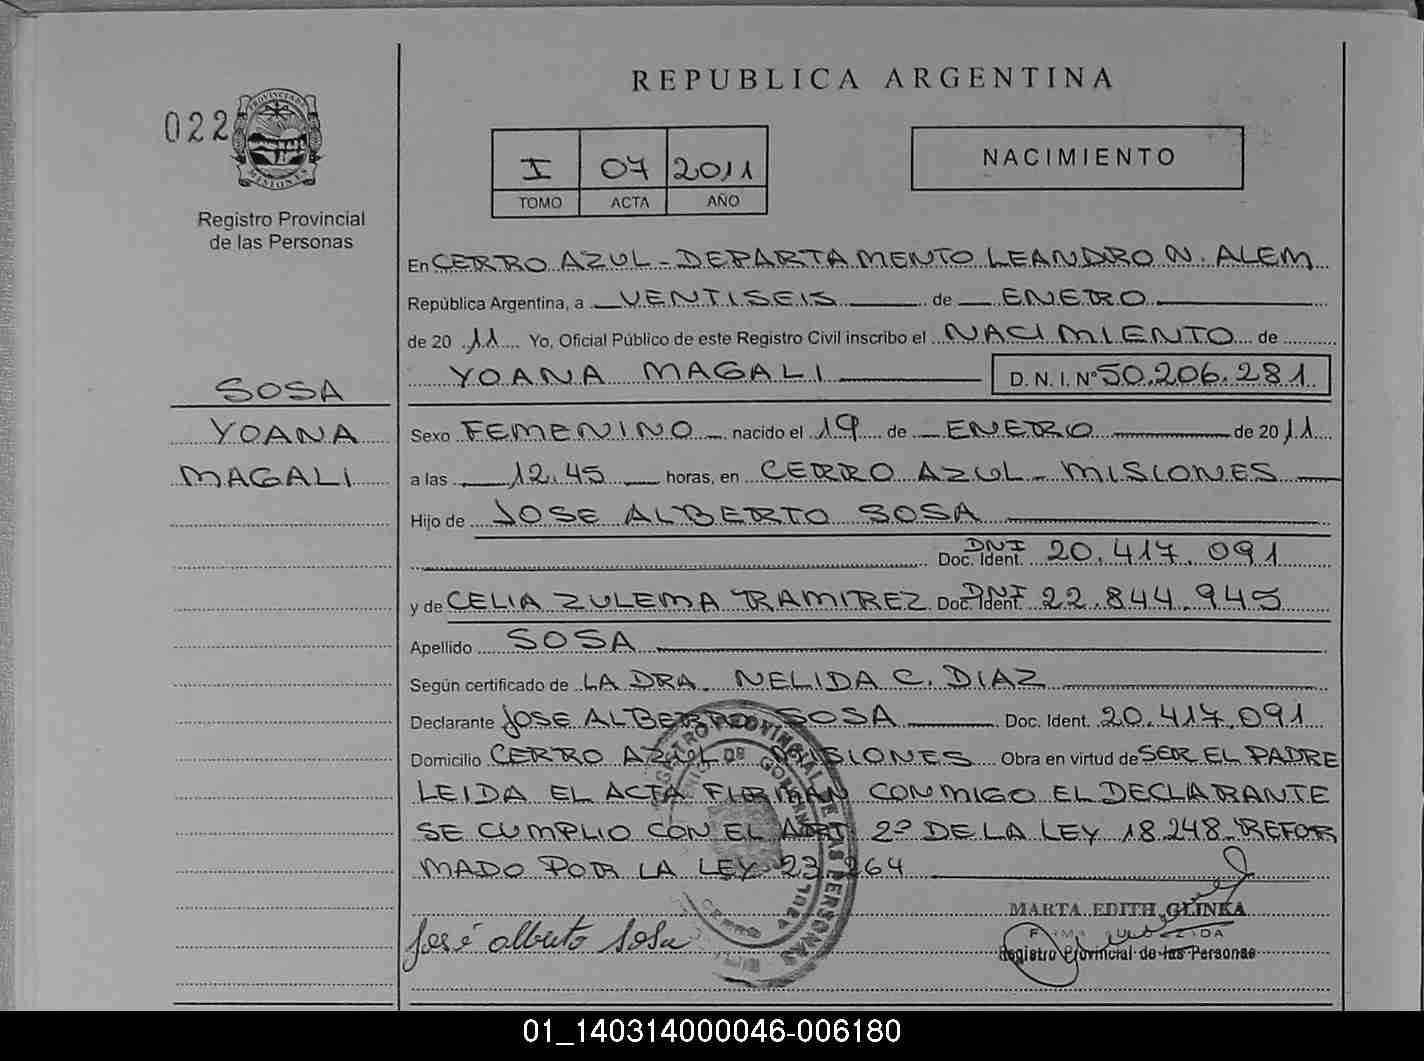 REPUBLICA ARGENTINA
022
PROVINCIA DE MISIONES
Registro Provincial
de las Personas
I 07 2011
TOMO ACTA AÑO
NACIMIENTO
SOSA
YOANA
MAGALI
En CERRO AZUL - DEPARTAMENTO LEANDRO N. ALEM
República Argentina, a VENTISEIS de ENERO
de 20 11 Yo, Oficial Público de este Registro Civil inscribo el NACIMIENTO de
YOANA MAGALI D. N. I. Nº 50.206.281
Sexo FEMENINO nacido el 19 de ENERO de 20 11
a las 12.45 horas, en CERRO AZUL - MISIONES
Hijo de JOSE ALBERTO SOSA
Doc. Ident. DNI 20.417.091
y de CELIA ZULEMA RAMIREZ Doc. Ident. DNI 22.844.945
Apellido SOSA
Según certificado de LA DRA. NELIDA C. DIAZ
Declarante JOSE ALBERTO SOSA Doc. Ident. 20.417.091
Domicilio CERRO AZUL MISIONES Obra en virtud de SER EL PADRE
LEIDA EL ACTA FIRMAN CONMIGO EL DECLARANTE
SE CUMPLIO CON EL ART 2º DE LA LEY 18.248 REFOR
MADO POR LA LEY 23.264
José Alberto Sosa
MARTA EDITH GLINKA
Registro Provincial de las Personas
REGISTRO PROVINCIAL DE LAS PERSONAS
CERRO AZUL
01_140314000046-006180